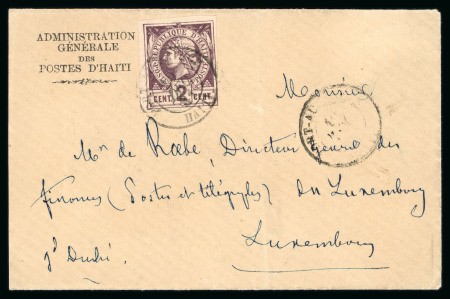 ADMINISTRATION
GÉNÉRALE
DES
POSTES D'HAITI
RÉPUBLIQUE D'HAITI
CENT 2 CENT
HAITI
PORT-AU
Monsieur
Mr de Rœbe, Directeur
finances (Postes et télégraphes) du Luxembourg
gd Duché.
Luxembourg